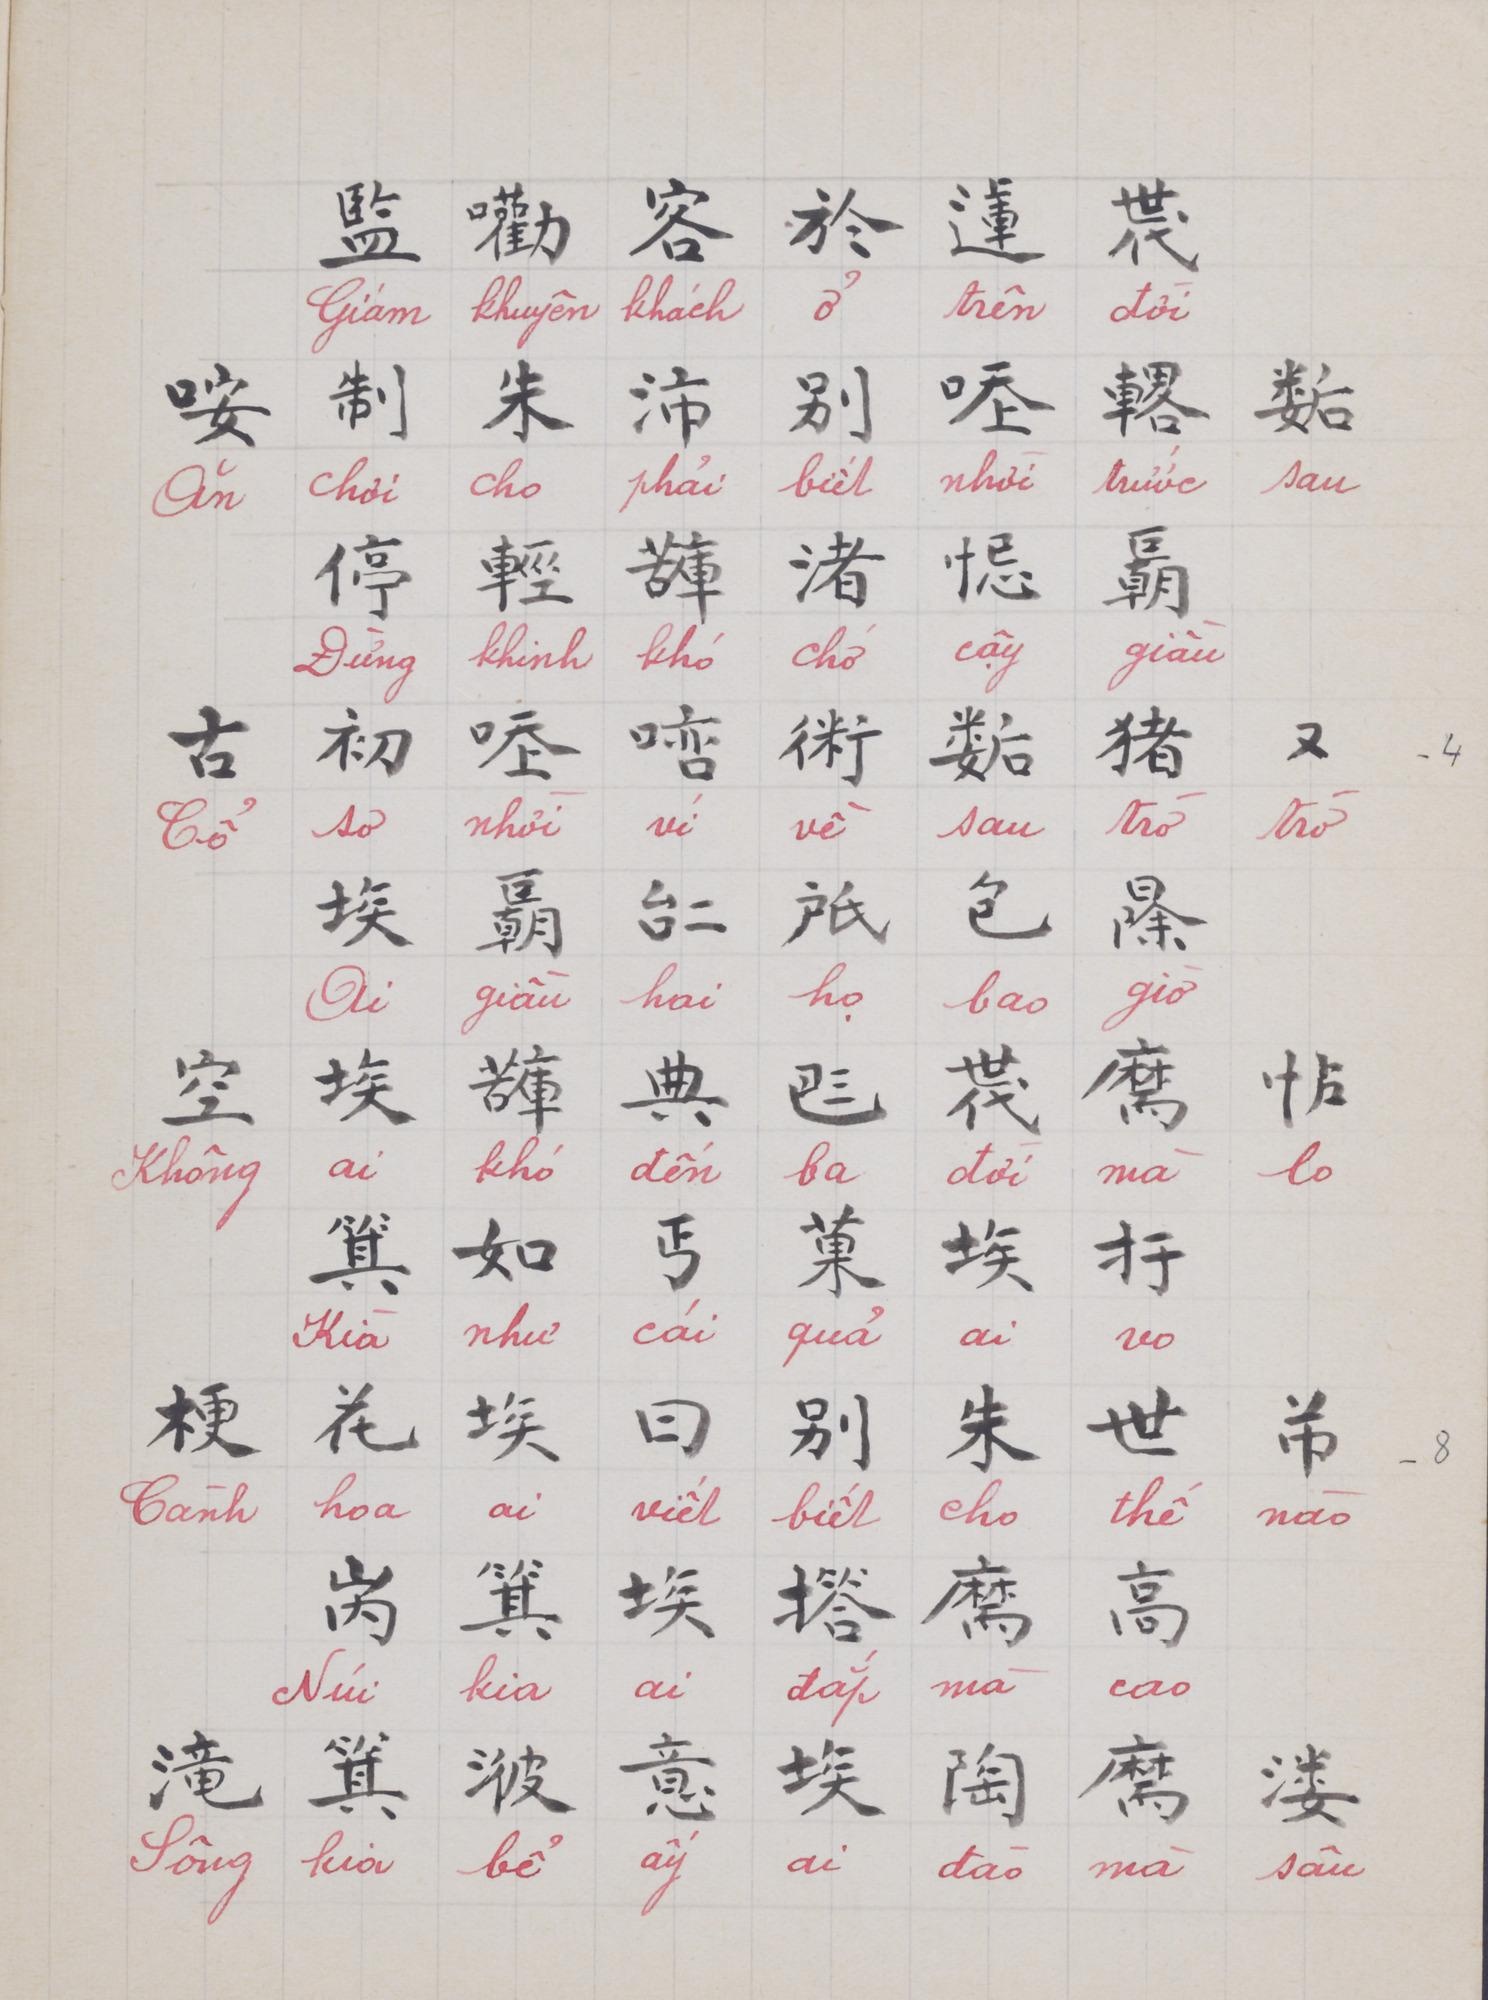 監 嚾 客 於 蓮 𠁀
Giám khuyên khách ở trên đời
咹 制 朱 沛 别 𠳒 𨎠 𢖖
Ăn chơi cho phải biết nhời trước sau
停 輕 𧁷 渚 忋 𢀭
Đừng khinh khó chớ cậy giầu
古 初 𠳒 噾 術 𢖖 猪 又 -4
Cổ sơ nhời ví về sau trò trò
埃 𢀭 𠄩 𢩽 包 𣇞
Ai giầu hai họ bao giờ
空 埃 𧁷 典 𠀧 𠁀 麻 怗
Không ai khó đến ba đời mà lo
箕 如 丐 菓 埃 扜
Kià như cái quả ai vo
梗 花 埃 曰 别 朱 世 芇 -8
Cành hoa ai viết biết cho thế nào
𡶀 箕 埃 搭 麻 高
Núi kia ai đắp mà cao
滝 箕 波 意 埃 陶 麻 溇
Sông kia bể ấy ai đào mà sâu